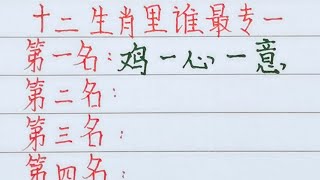 十二生肖里谁最专一
第一名：鸡一心一意
第二名：
第三名：
第四名：